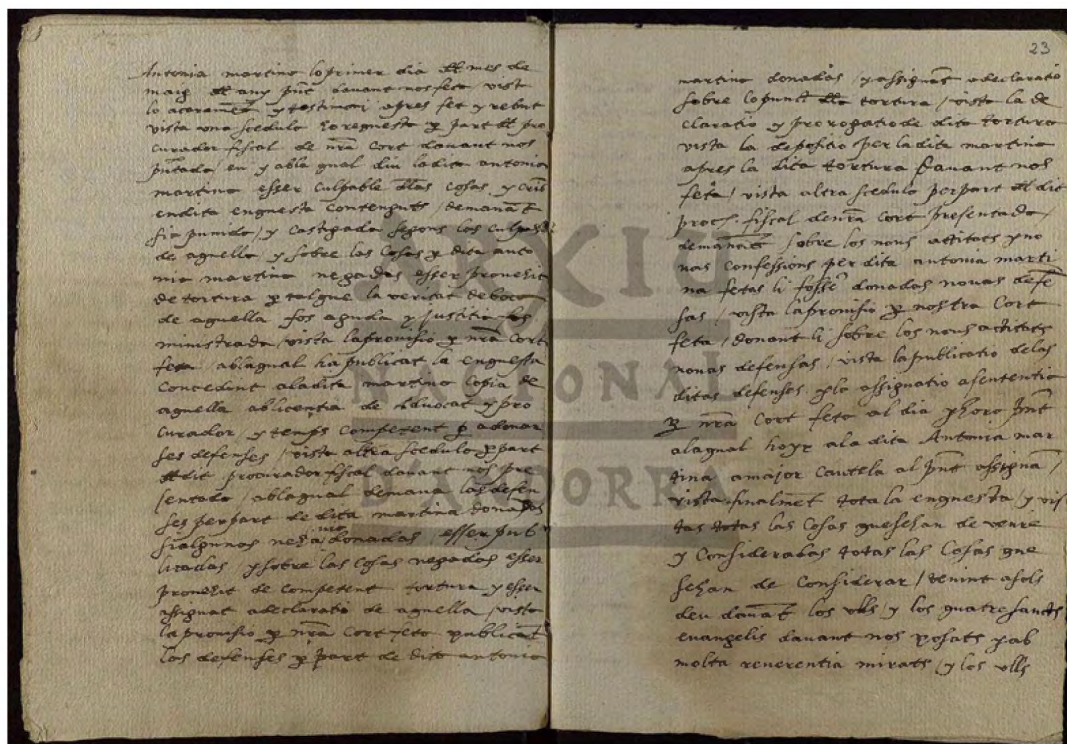 Antonia martina lo primer dia dl mes de
maig dl any pnt davant nos feta vist
lo acarament y testimoni apres fet y rebut
vista una scedula requesta per part dl pro
curador fiscal de nra Cort davant nos
pntada / en y abla qual diu la dita antonia
martina esser culpable dlas cosas, y crims
en dita enquesta contenguts / demanat
sia punida / y castigada segons las culpas
de aquella y sobre las cosas y dita anto
nia martina negadas esser provehit
de tortura per tal que la veritat de boca
de aquella fos aguda y justitia fos
ministrada / vista la provisio per nra Cort
feta / ablaqual ha publicat la enquesta
Concedint ala dita martina copia de
aquella ab licentia de Advocat y pro
curador y temps competent per a donar
ses defenses / vista altra scedula per part
dl dit procurador fiscal davant nos pre
sentada / ablaqual demana las defen
ses per part de dita martina donadas
si algunas neha donadas esser pub
licadas y sobre las cosas negadas esser
provehit de competent tortura y esser
assignat a declaratio de aquella / vista
la provisio per nra Cort feta publicat
las defenses per part de dita antonia
23
martina donadas / y assignat a declaratio
sobre lo punt dla tortura / vista la de
claratio y prorogatio de dita tortura
vista la depositio per la dita martina
apres la dita tortura davant nos
feta / vista altra scedula per part dl dit
proc. fiscal de nra Cort presentada /
demanat sobre los nous actitats y no
vas confessions per dita antonia marti
na fetas li fossen donadas novas defe
sas / vista la provisio per nostra Cort
feta / donant li sobre los nous actitats
novas defensas / vista la publicatio de las
ditas defenses y la assignatio a sententia
per nra Cort feta al dia y hora pnt
ala qual hoyr ala dita Antonia mar
tina a major cautela al pnt assignam /
vista finalmet tota la enquesta / y vis
tas totas las cosas que sehan de veure
y Consideradas totas las Cosas que
sehan de Considerar / tenint a sols
deu davat los ulls / y los quatre sancts
evangelis davant nos posats y ab
molta reverentia mirats / y los ulls
ARXIU
NACIONAL
D'ANDORRA